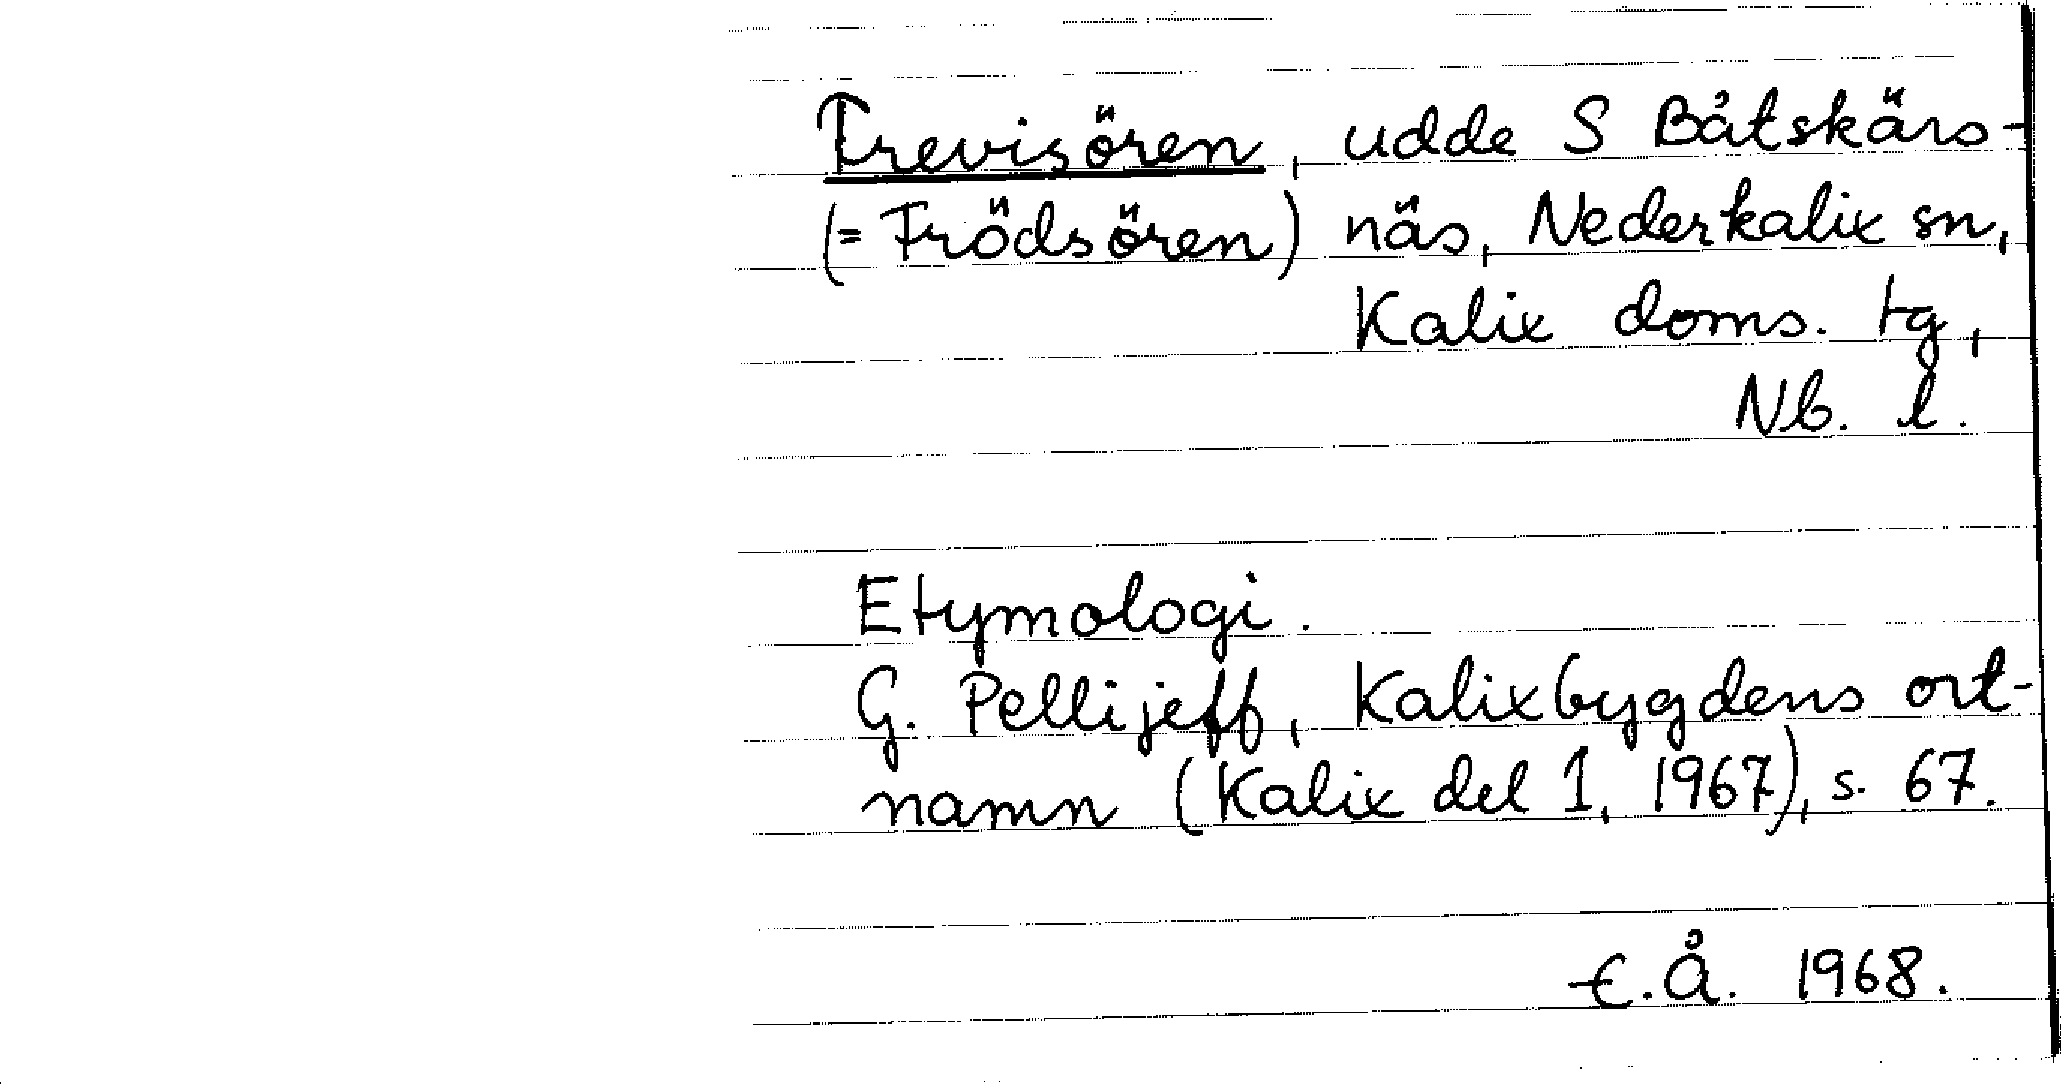 Trevisören, udde S Båtskärs-
(= Frödsören) näs, Nederkalix sn,
Kalix doms. tg,
Nb. l.
Etymologi.
G. Pellijeff, Kalixbygdens ort-
namn (Kalix del 1, 1967), s. 67.
E.Å. 1968.